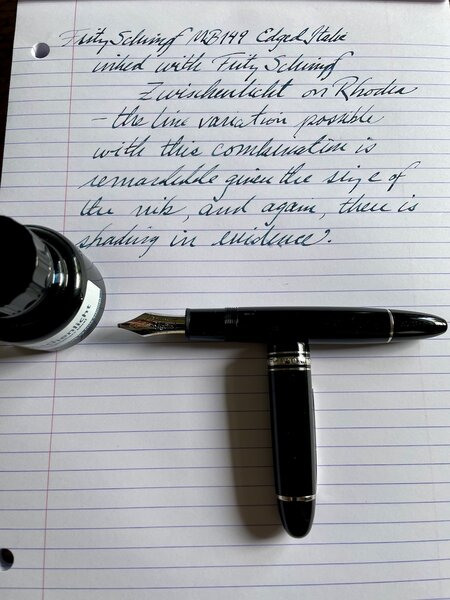 Fritz Schimpf MB149 Edged Italic
inked with Fritz Schimpf
Zwischenlicht on Rhodia
- the line variation possible
with this combination is
remarkable given the size of
the nib, and again, there is
shading in evidence.